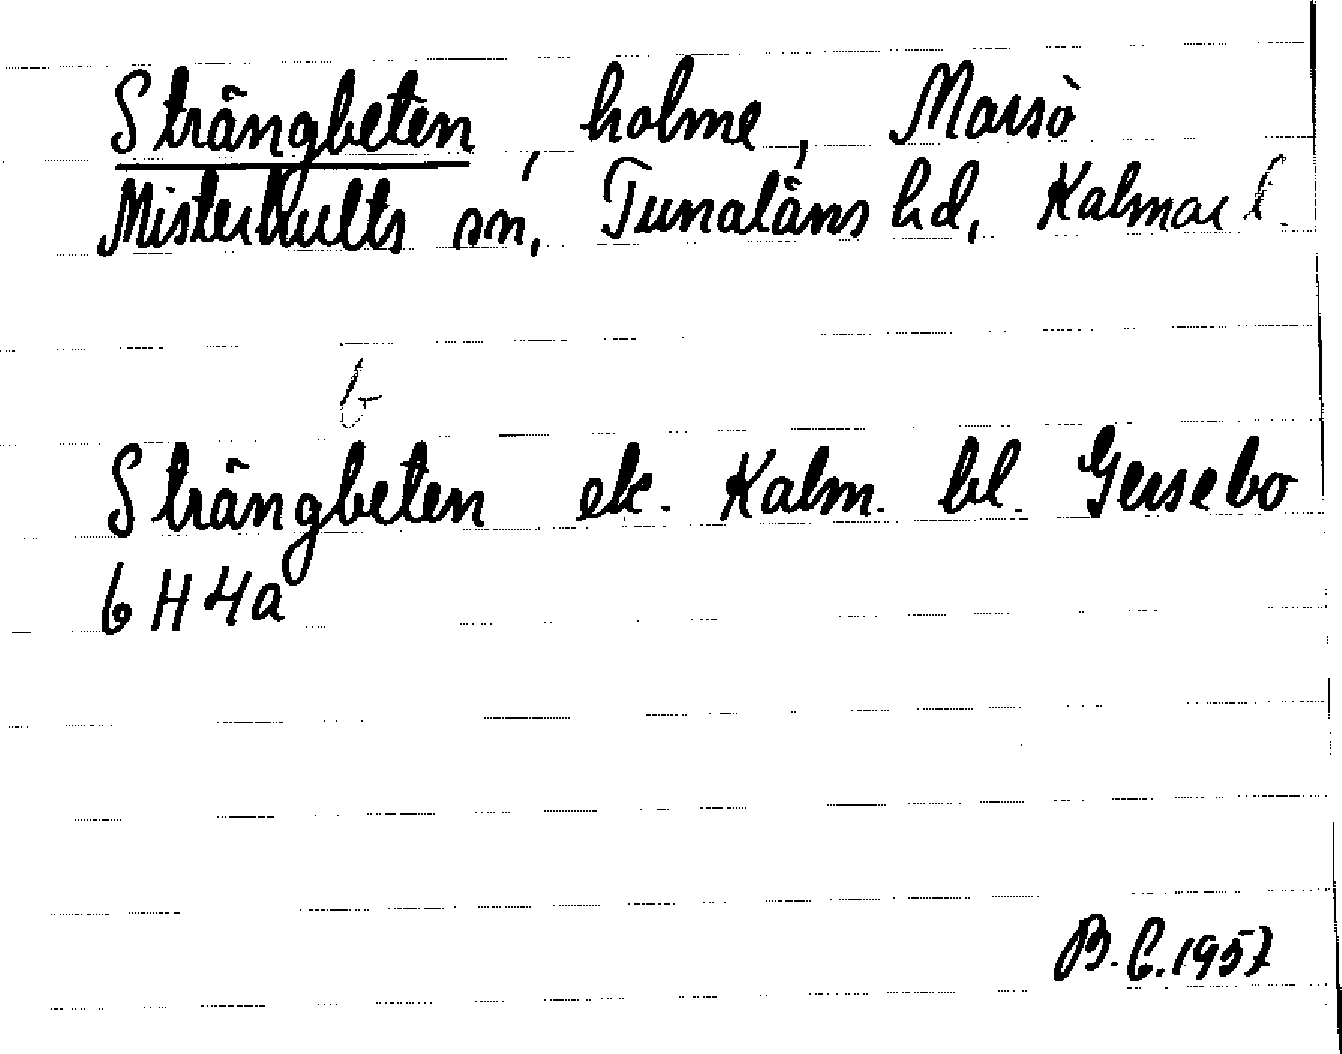 Strängbeten, holme, Marsö
Misterhults sn, Tunaläns hd, Kalmar l.
b
Strängbeten ek. Kalm. bl. Gersebo
6H4a
B.E.1957